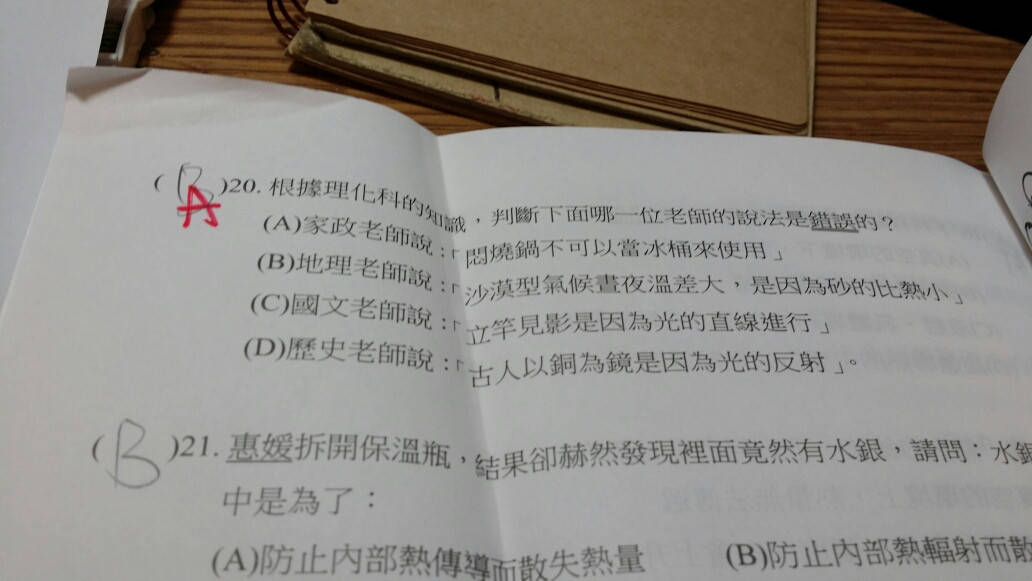 (B A)20. 根據理化科的知識，判斷下面哪一位老師的說法是錯誤的？
(A)家政老師說：「悶燒鍋不可以當冰桶來使用」
(B)地理老師說：「沙漠型氣候晝夜溫差大，是因為砂的比熱小」
(C)國文老師說：「立竿見影是因為光的直線進行」
(D)歷史老師說：「古人以銅為鏡是因為光的反射」。
(B)21. 惠媛拆開保溫瓶，結果卻赫然發現裡面竟然有水銀，請問：水銀
中是為了：
(A)防止內部熱傳導而散失熱量 (B)防止內部熱輻射而散